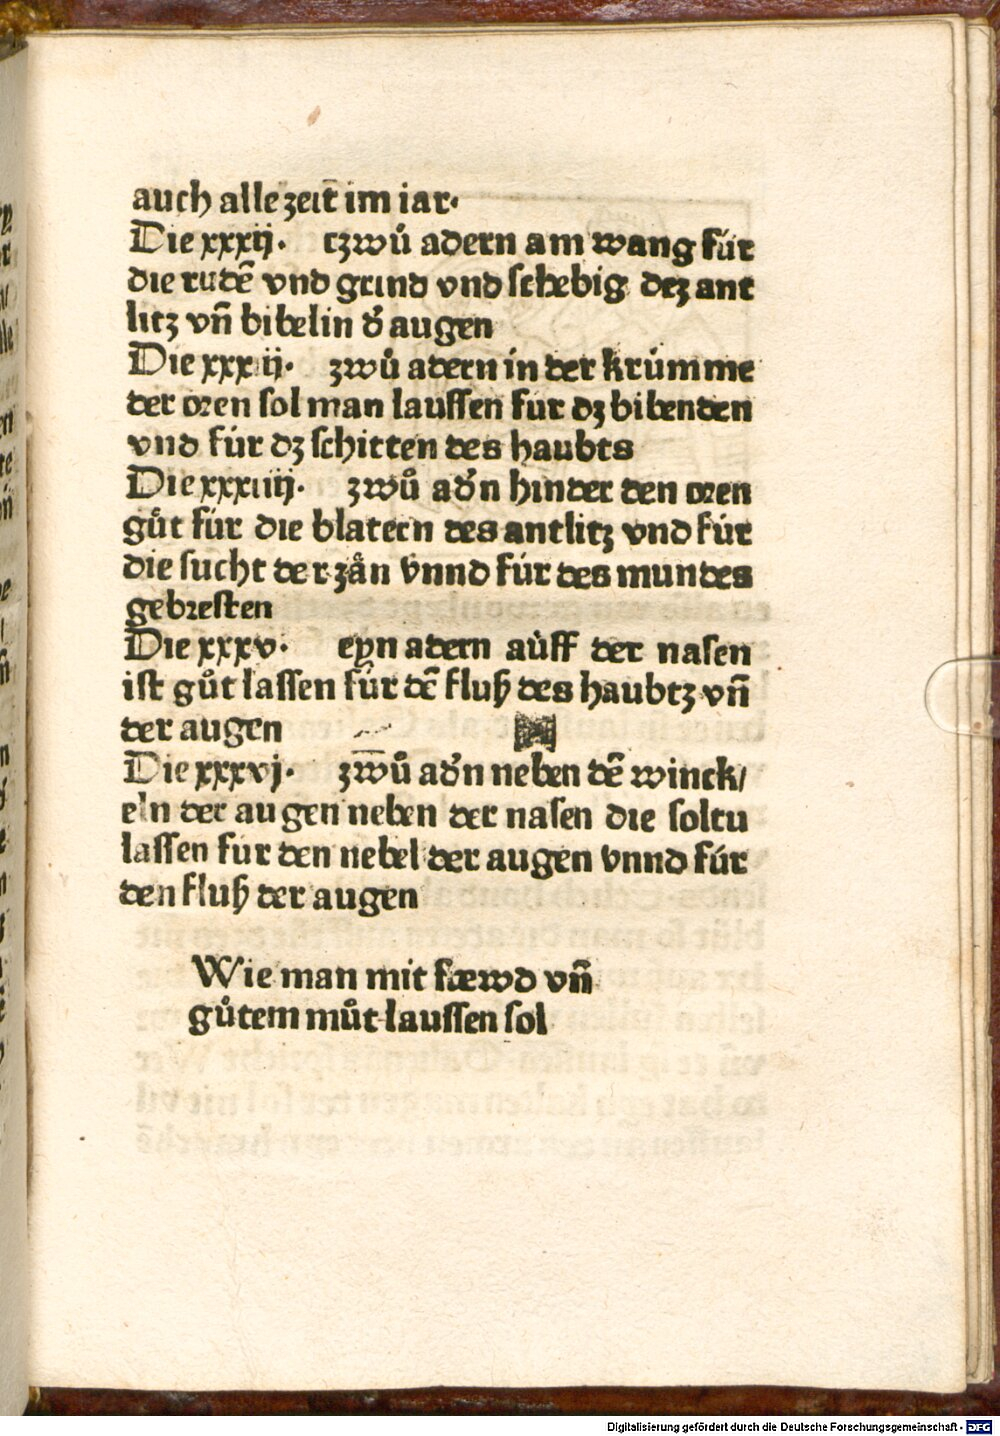 auch alle zeit im iar·
Die xxxij· tzwů adern am wang für
die rudē vnd grind vnd schebig dez ant
litz vn̄ bibelin d̾ augen
Die xxxiij· zwů adern in der krümme
der oren sol man laussen fur dz bibenden
vnd für dz schitten des haubts
Die xxxiiij· zwů ad̾n hinder den oren
gůt für die blatern des antlitz vnd für
die sucht der zån vnnd für des mundes
gebresten
Die xxxv· eyn adern aůff der nasen
ist gůt lassen für dē fluß des haubtz vn̄
der augen
Die xxxvj· zwů ad̾n neben dē winck/
eln der augen neben der nasen die soltu
lassen fur den nebel der augen vnnd für
den fluß der augen
Wie man mit fræwd vn̄
gůtem můt laussen sol
Digitalisierung gefördert durch die Deutsche Forschungsgemeinschaft - DFG